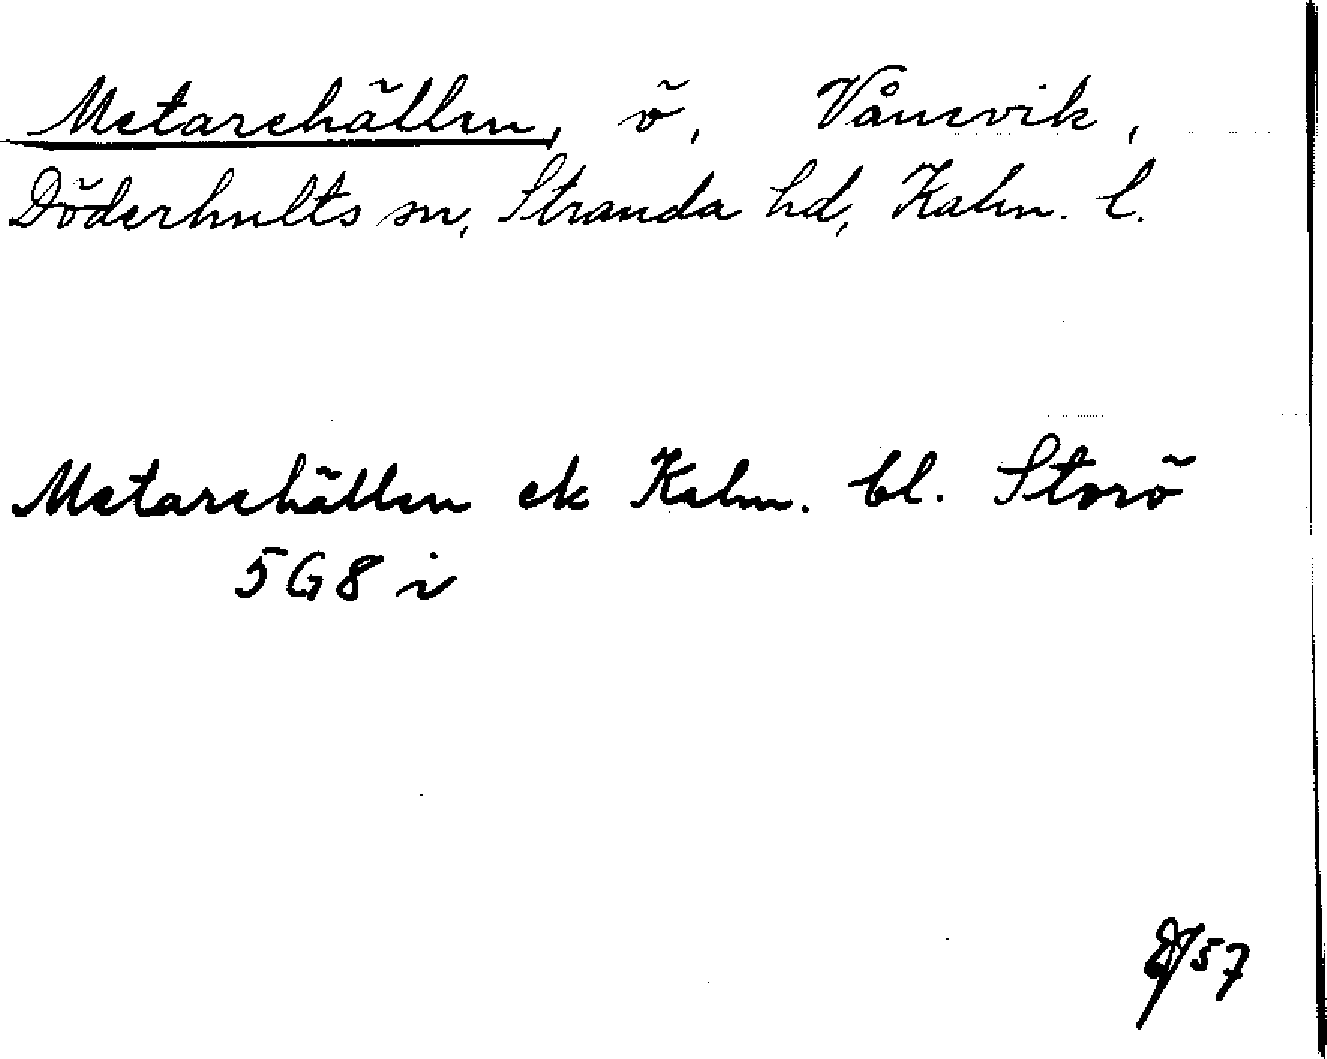 Metarehällen, ö, Vånevik,
Döderhults sn, Stranda hd, Kalm. l.
Metarehällen ek Kalm. bl. Storö
5G8i
/57